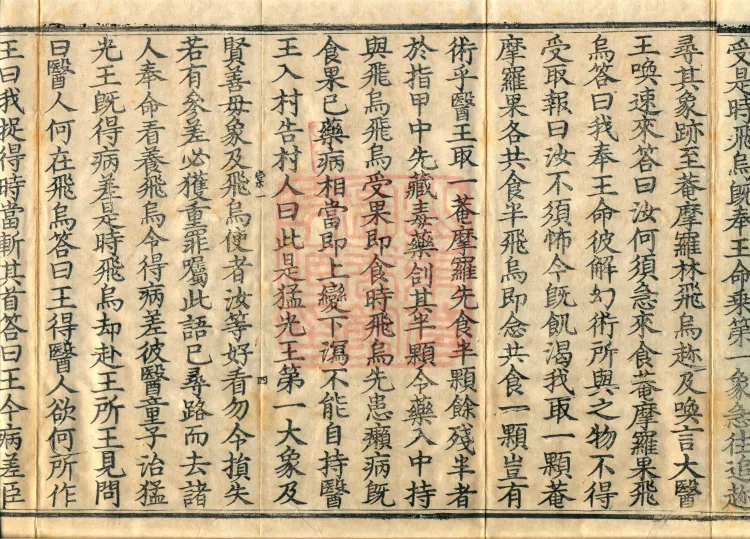 受是時飛烏旣奉王命乘第一象急往追趂
尋其象跡至菴摩羅林飛烏趂及喚言大醫
王喚速來答曰汝何須急來食菴摩羅果飛
烏答曰我奉王命彼解幻術所與之物不得
受取報曰汝不須怖今旣飢渴我取一顆菴
摩羅果各共食半飛烏即念共食一顆豈有
術乎醫王取一菴摩羅先食半顆餘殘半者
於指甲中先藏毒藥創其半顆令藥入中持
與飛烏飛烏受果即食時飛烏先患癩病旣
食果已藥病相當即上變下瀉不能自持醫
王入村告村人曰此是猛光王第一大象及
四
賢善母象及飛烏使者汝等好看勿令損失
若有參差必獲重罪囑此語已尋路而去諸
人奉命看養飛烏令得病差彼醫童子治猛
光王旣得病差是時飛烏却赴王所王見問
曰醫人何在飛烏答曰王得醫人欲何所作
王曰我捉得時當斬其首答曰王今病差臣